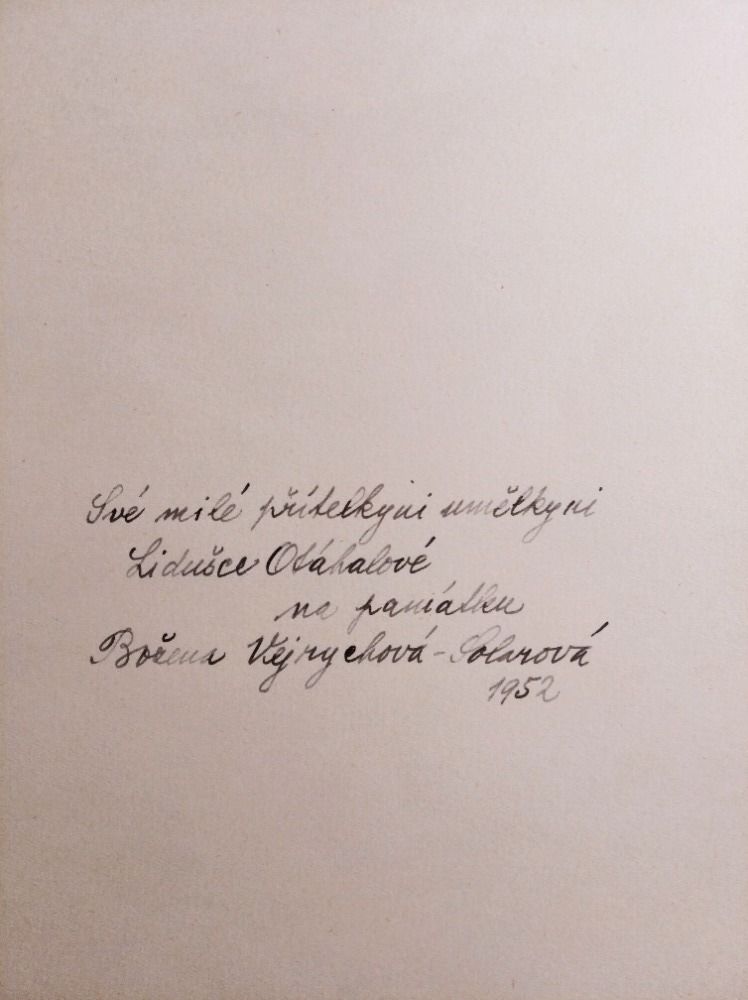 Své milé přítelkyni umělkyni
Lidušce Otáhalové
na památku
Božena Vejrychová-Solarová
1952